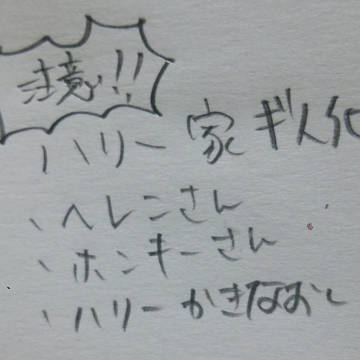 注意!!
ハリー家ギ人化
、ヘレンさん
、ホンキーさん
、ハリーかきなおし